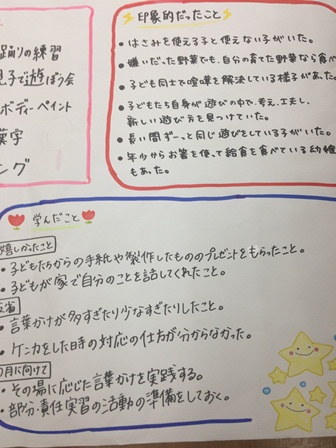 踊りの練習
息子で遊ぼう会
ボディーペイント
漢字
ング
印象的だったこと
・はさみを使える子と使えない子がいた。
・嫌いだった野菜でも、自分の育てた野菜なら食べ
・子ども同士で喧嘩を解決している様子があった。
・子どもたち自身が遊びの中で、考え、工夫し、
新しい遊び方を見つけていた。
・長い間ずーっと同じ遊びをしている子がいた。
・年少からお箸を使って給食を食べている幼稚
もあった。
学んだこと
嬉しかったこと
・子どもたちからの手紙や製作したもののプレゼントをもらったこと。
・子どもが家で自分のことを話してくれたこと。
省
・言葉かけが多すぎたり少なすぎたりしたこと。
・ケンカをした時の対応の仕方が分からなかった。
月に向けて
・その場に応じた言葉かけを実践する。
・部分・責任実習の活動の準備をしておく。